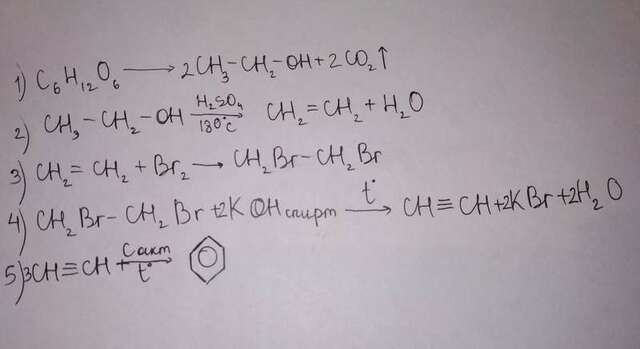 1) C₆H₁₂O₆ ⟶ 2CH₃–CH₂–OH + 2CO₂↑
2) CH₃–CH₂–OH H₂SO₄ 180°C → CH₂=CH₂ + H₂O
3) CH₂=CH₂ + Br₂ ⟶ CH₂Br–CH₂Br
4) CH₂Br–CH₂Br + 2KOH спирт t° ⟶ CH≡CH + 2KBr + 2H₂O
5) 3CH≡CH + C акт t° →